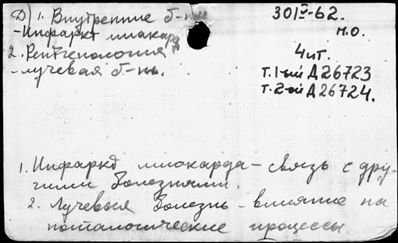 Д) 1. Внутренние б-ни
301 I-62.
-Инфаркт миокард
м.о.
2. Рентгенология
4 ит.
-лучевая б-нь.
т. 1-ый Д 26723
т. 2-ой Д 26724.
1. Инфаркт миокарда - связь с дру-
гими болезнями.
2. Лучевая болезнь - влияние на
патологические процессы